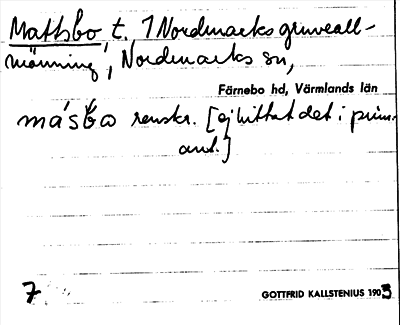 Mattsbo t. 1 Nordmarks gruveall-
männing, Nordmarks sn,
Färnebo hd, Värmlands län
måsbo renskr. [ej hittat det i prim.
ant.]
7
GOTTFRID KALLSTENIUS 1903